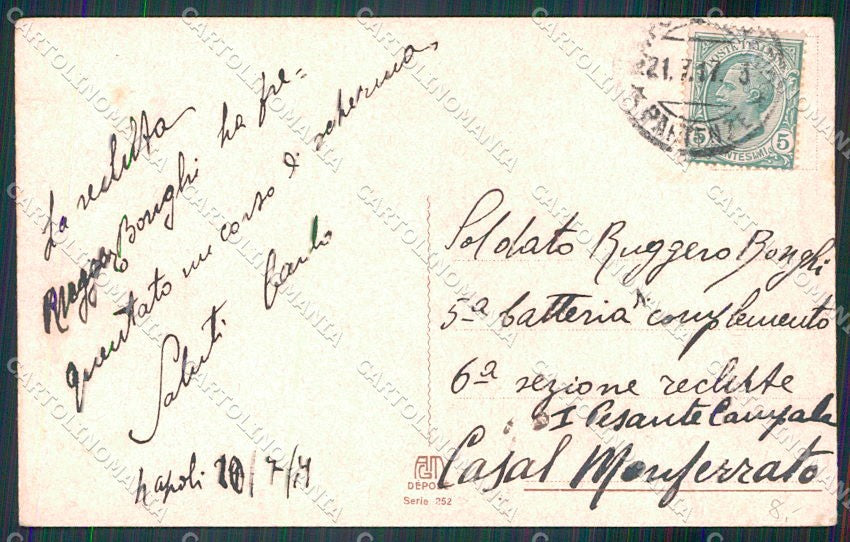 La recluta
Ruggero Bonghi ha fre=
quentato un corso di scherma.
Saluti Carlo
Napoli 20/7/17
21.7.17
POSTE ITALIANE
5 CENTESIMI 5
Soldato Ruggero Bonghi
5ª batteria complemento
6ª sezione reclute
I Pesante Campale
Casal Monferrato
DÉPOSÉ
Serie 252
8.-
CARTOLINOMANIA